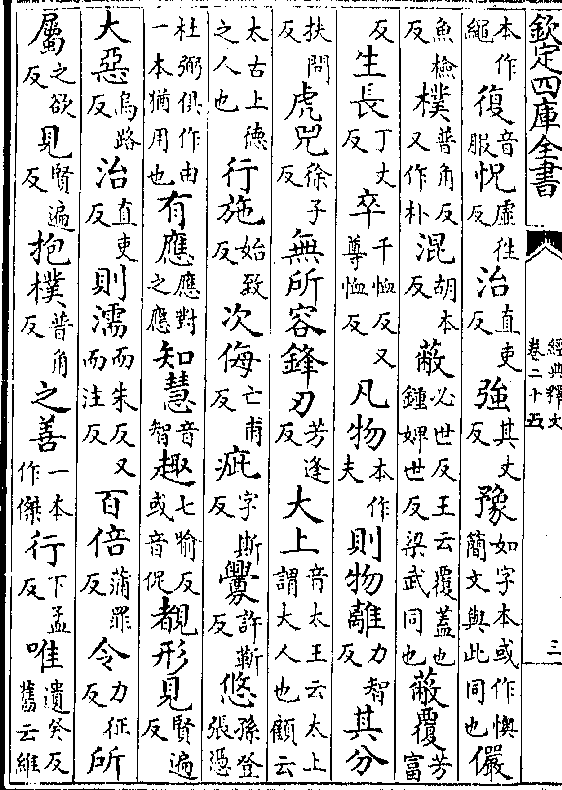 欽定四庫全書
經典釋文
卷二十五
三
本作繩復音服怳虛往反治直吏反強其丈反豫如字本或作懊簡文與此同也儼
魚檢反樸普角反又作朴混胡本反蔽必世反王云覆蓋也鍾婢世反梁武同也蔽覆芳富
反生長丁丈反卒千恤反又尊恤反凡物本作夫則物離力智反其分
扶問反虎兕徐子反無所容鋒刃芳逢反大上音太王云太上謂大人也顧云
太古上德之人也行施始致反次侮亡甫反疵字斯反釁許靳反悠孫登張憑
杜弼俱作由一本猶用也有應應對之應知慧音智趣七喻反或音促覩形見賢遍反
大惡烏路反治直吏反則濡而朱反又而注反百倍蒲罪反令力征反所
屬之欲反見賢遍反抱樸普角反之善一本作傑行下孟反唯遺癸反舊云維